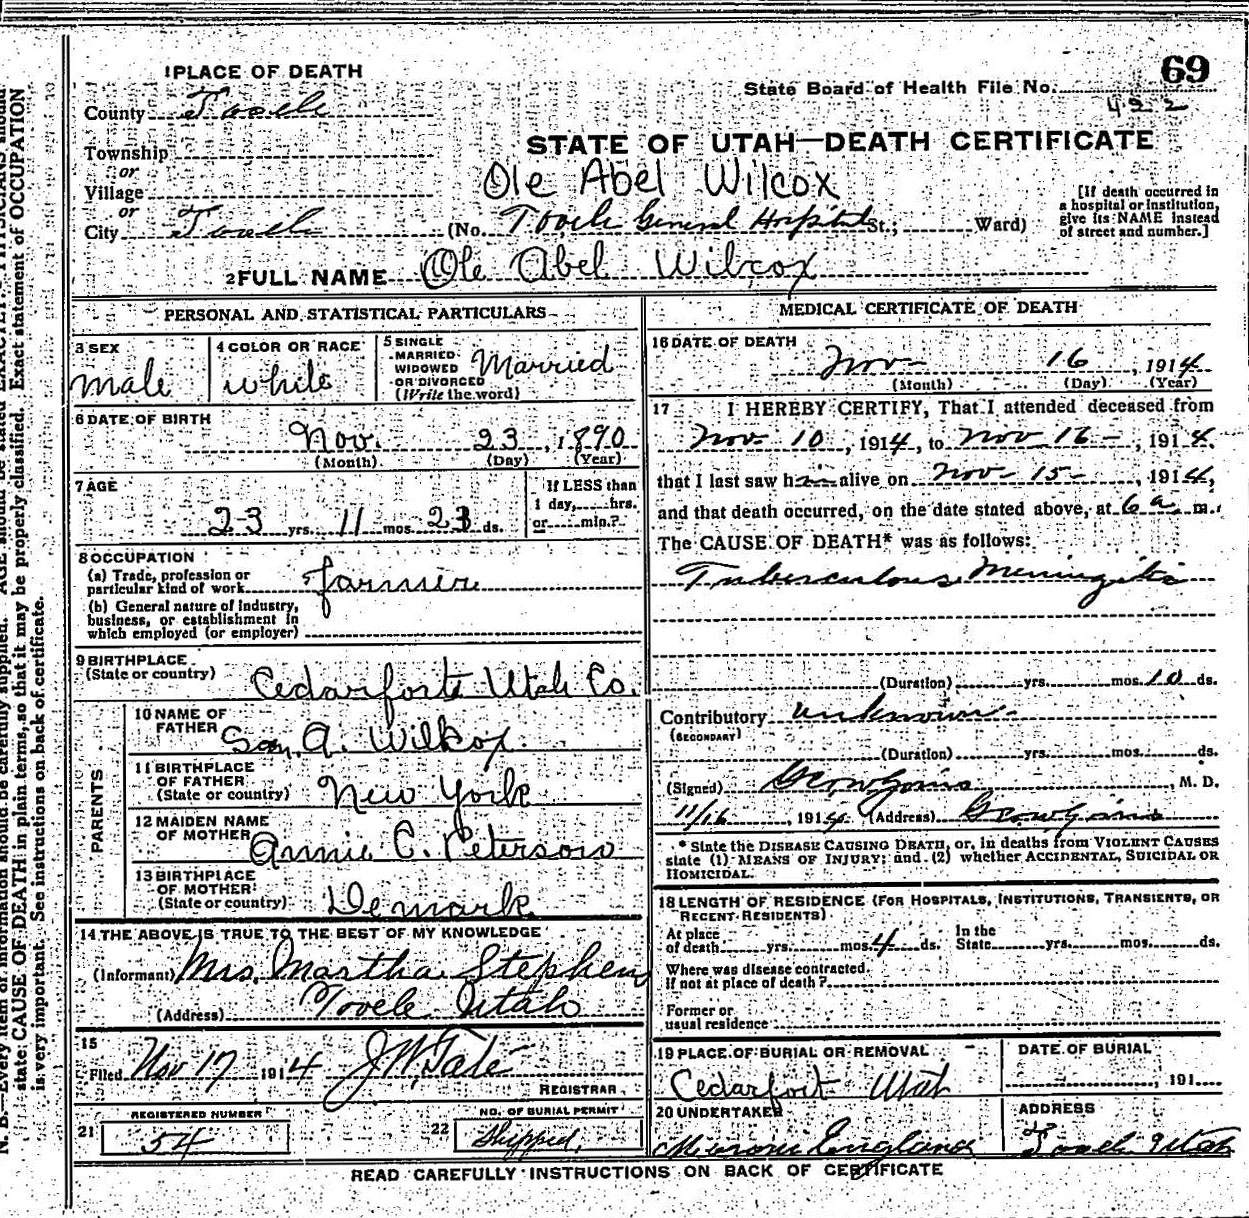 69
1 PLACE OF DEATH
State Board of Health File No. 422
County Tooele
STATE OF UTAH—DEATH CERTIFICATE
Township
or
Ole Abel Wilcox
Village
or
City Tooele (No. Tooele General Hospital St.; Ward)
[If death occurred in
a hospital or institution,
give its NAME instead
of street and number.]
2 FULL NAME Ole Abel Wilcox
PERSONAL AND STATISTICAL PARTICULARS
3 SEX
male
4 COLOR OR RACE
white
5 SINGLE
MARRIED
WIDOWED
OR DIVORCED
(Write the word)
Married
6 DATE OF BIRTH
Nov. 23, 1890
(Month) (Day) (Year)
7 AGE
23 yrs. 11 mos. 23 ds.
If LESS than
1 day, hrs.
or min.?
8 OCCUPATION
(a) Trade, profession or
particular kind of work farmer
(b) General nature of industry,
business, or establishment in
which employed (or employer)
9 BIRTHPLACE
(State or country)
Cedarforte Utah Co.
PARENTS
10 NAME OF
FATHER
A. Wilkox.
11 BIRTHPLACE
OF FATHER
(State or country)
New York
12 MAIDEN NAME
OF MOTHER
Annie C. Peterson
13 BIRTHPLACE
OF MOTHER
(State or country)
Demark
14 THE ABOVE IS TRUE TO THE BEST OF MY KNOWLEDGE
(Informant) Mrs. Martha Stephens
(Address) Tooele Utah
15
Filed Nov 17 1914 J.W. Tate
REGISTRAR
21 REGISTERED NUMBER
54
22 NO. OF BURIAL PERMIT
Shipped.
MEDICAL CERTIFICATE OF DEATH
16 DATE OF DEATH
Nov 16, 1914
(Month) (Day) (Year)
17 I HEREBY CERTIFY, That I attended deceased from
Nov 10, 1914, to Nov 16, 1914.
that I last saw him alive on Nov 15, 1914,
and that death occurred, on the date stated above, at 6 a m.
The CAUSE OF DEATH* was as follows:
Tuberculous Meningitis
(Duration) yrs. mos. 10 ds.
Contributory unknown
(SECONDARY)
(Duration) yrs. mos. ds.
(Signed) M. D.
11/16, 1914 (Address)
* State the DISEASE CAUSING DEATH, or, in deaths from VIOLENT CAUSES
state (1) MEANS OF INJURY; and (2) whether ACCIDENTAL, SUICIDAL OR
HOMICIDAL.
18 LENGTH OF RESIDENCE (FOR HOSPITALS, INSTITUTIONS, TRANSIENTS, OR
RECENT RESIDENTS)
At place
of death yrs. mos. 4 ds.
In the
State yrs. mos. ds.
Where was disease contracted,
If not at place of death?
Former or
usual residence
19 PLACE OF BURIAL OR REMOVAL
Cedarfort Utah
DATE OF BURIAL
, 191
20 UNDERTAKER
England
ADDRESS
Tooele Utah
READ CAREFULLY INSTRUCTIONS ON BACK OF CERTIFICATE
N. B.—Every item of information should be carefully supplied. AGE should be stated EXACTLY. PHYSICIANS should
state CAUSE OF DEATH in plain terms, so that it may be properly classified. Exact statement of OCCUPATION
is very important. See instructions on back of certificate.